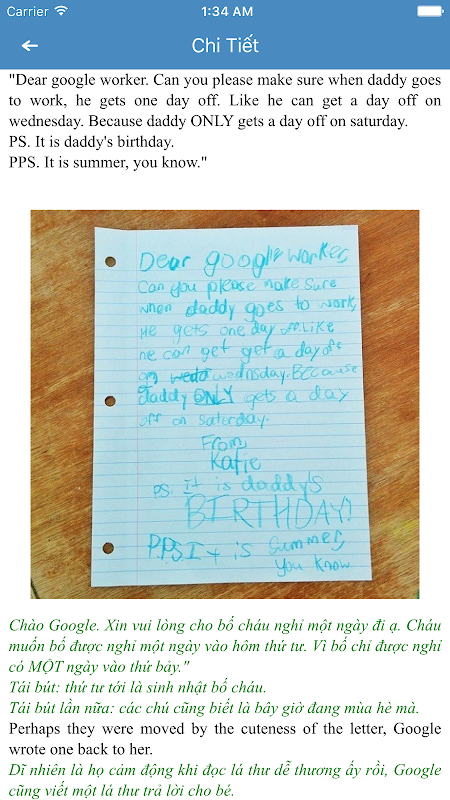 Carrier 1:34 AM
Chi Tiết
"Dear google worker. Can you please make sure when daddy goes
to work, he gets one day off. Like he can get a day off on
wednesday. Because daddy ONLY gets a day off on saturday.
PS. It is daddy's birthday.
PPS. It is summer, you know."
Dear google worker,
Can you please make sure
when daddy goes to work,
He gets one day off. Like
he can get get a day off
on wedo wednsday. BECause
daddy ONLY gets a day
off on saturday.
From,
Katie
PS. It is daddy's
BIRTHDAY!
P.P.S It is summer,
you know
Chào Google. Xin vui lòng cho bố cháu nghỉ một ngày đi ạ. Cháu
muốn bố được nghỉ một ngày vào hôm thứ tư. Vì bố chỉ được nghỉ
có MỘT ngày vào thứ bảy."
Tái bút: thứ tư tới là sinh nhật bố cháu.
Tái bút lần nữa: các chú cũng biết là bây giờ đang mùa hè mà.
Perhaps they were moved by the cuteness of the letter, Google
wrote one back to her.
Dĩ nhiên là họ cảm động khi đọc lá thư dễ thương ấy rồi, Google
cũng viết một lá thư trả lời cho bé.